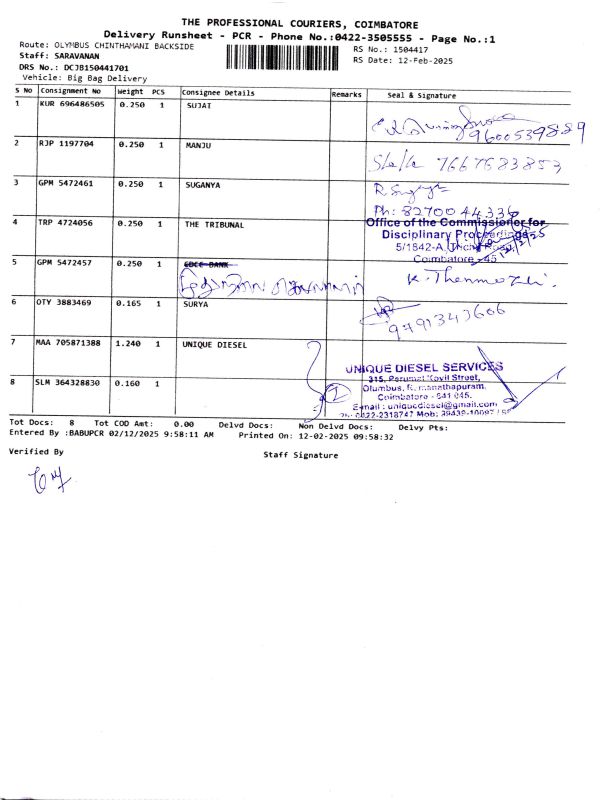 THE PROFESSIONAL COURIERS, COIMBATORE
Delivery Runsheet - PCR - Phone No.:0422-3505555 - Page No.:1
Route: OLYMBUS CHINTHAMANI BACKSIDE
RS No.: 1504417
Staff: SARAVANAN
RS Date: 12-Feb-2025
DRS No.: DCJB150441701
Vehicle: Big Bag Delivery
S No Consignment No Weight PCS Consignee Details Remarks Seal & Signature
1 KUR 696486505 0.250 1 SUJAI
9600539889
2 RJP 1197704 0.250 1 MANJU
7667683853
3 GPM 5472461 0.250 1 SUGANYA
Ph: 8270044336
4 TRP 4724056 0.250 1 THE TRIBUNAL
Office of the Commissioner for
Disciplinary Proceedings
5/1842-A,
Coimbatore - 45
5 GPM 5472457 0.250 1 EDCE BANK
K. Thenmozhi.
6 OTY 3883469 0.165 1 SURYA
9791343606
7 MAA 705871388 1.240 1 UNIQUE DIESEL
UNIQUE DIESEL SERVICES
315, Perumal Kovil Street,
8 SLM 364328830 0.160 1
Olumbus, Ramanathapuram,
Coimbatore - 641 045.
E-mail : uniquediesel@gmail.com
Ph: 0422-2318747 Mob:
Tot Docs: 8 Tot COD Amt: 0.00 Delvd Docs: Non Delvd Docs: Delvy Pts:
Entered By :BABUPCR 02/12/2025 9:58:11 AM Printed On: 12-02-2025 09:58:32
Verified By Staff Signature